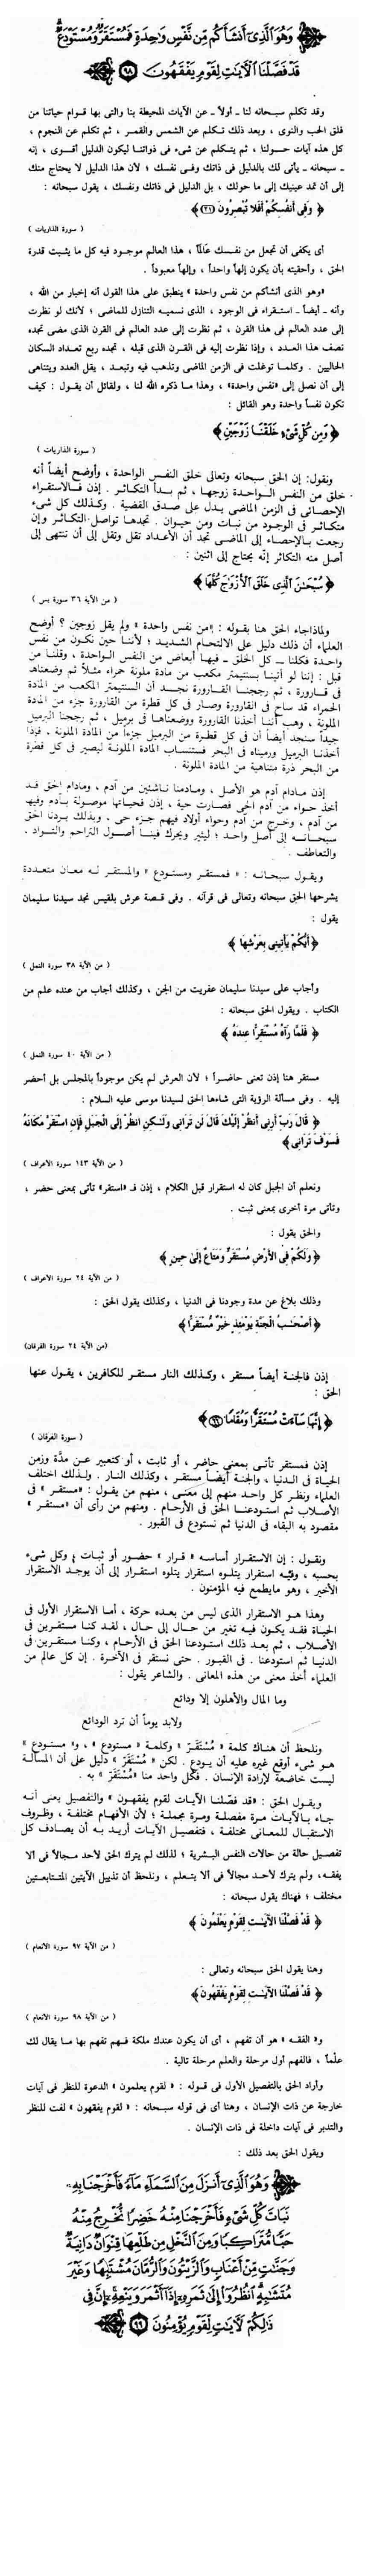 وَهُوَ الَّذِىٓ أَنشَأَكُم مِّن نَّفْسٍ وَٰحِدَةٍ فَمُسْتَقَرٌّ وَمُسْتَوْدَعٌ
قَدْ فَصَّلْنَا ٱلْءَايَٰتِ لِقَوْمٍ يَفْقَهُونَ ﴿٩٨﴾
وقد تكلم سبحانه لنا ـ أولاً ـ عن الآيات المحيطة بنا والتى بها قوام حياتنا من
فلق الحب والنوى ، وبعد ذلك تكلم عن الشمس والقمر ، ثم تكلم عن النجوم ،
كل هذه آيات حولنا ، ثم يتكلم عن شىء فى ذواتنا ليكون الدليل أقوى ، إنه
ـ سبحانه ـ يأتى لك بالدليل فى ذاتك وفى نفسك ؛ لأن هذا الدليل لا يحتاج منك
إلى أن تمد عينيك إلى ما حولك ، بل الدليل فى ذاتك ونفسك ، يقول سبحانه :
﴿ وَفِىٓ أَنفُسِكُمْ أَفَلَا تُبْصِرُونَ (٢١) ﴾
( سورة الذاريات )
أى يكفى أن تجعل من نفسك عَالَماً ، هذا العالم موجود فيه كل ما يثبت قدرة
الحق ، وأحقيته بأن يكون إلهاً واحداً ، وإلهاً معبوداً .
«وهو الذى أنشأكم من نفس واحدة» ينطبق على هذا القول أنه إخبار من الله ،
وأنه ـ أيضاً ـ استقراء فى الوجود ، الذى نسميه التنازل للماضى ؛ لأنك لو نظرت
إلى عدد العالم فى هذا القرن ، ثم نظرت إلى عدد العالم فى القرن الذى مضى تجده
نصف هذا العدد ، وإذا نظرت إليه فى القرن الذى قبله ، تجده ربع تعداد السكان
الحاليين . وكلما توغلت فى الزمن الماضى وتذهب فيه وتبعد ، يقل العدد ويتناهى
إلى أن نصل إلى «نفس واحدة» ، وهذا ما ذكره الله لنا ، ولقائل أن يقول : كيف
تكون نفساً واحدة وهو القائل :
﴿ وَمِن كُلِّ شَىْءٍ خَلَقْنَا زَوْجَيْنِ ﴾
( سورة الذاريات )
ونقول: إن الحق سبحانه وتعالى خلق النفس الواحدة ، وأوضح أيضاً أنه
خلق من النفس الواحدة زوجها ، ثم بدأ التكاثر . إذن فالاستقراء
الإحصائى فى الزمن الماضى يدل على صدق القضية . وكذلك كل شىء
متكاثر فى الوجود من نبات ومن حيوان . تجدها تواصل التكاثر وإن
رجعت بالإحصاء إلى الماضى تجد أن الأعداد تقل وتقل إلى أن تنتهى إلى
أصل منه التكاثر إنه يحتاج إلى اثنين :
﴿ سُبْحَٰنَ ٱلَّذِى خَلَقَ ٱلْأَزْوَٰجَ كُلَّهَا ﴾
( من الآية ٣٦ سورة يس )
ولماذا جاء الحق هنا بقوله : «من نفس واحدة » ولم يقل زوجين ؟ أوضح
العلماء أن ذلك دليل على الالتحام الشديد ؛ لأننا حين نكون من نفس
واحدة فكلنا ـ كل الخلق ـ فيها أبعاض من النفس الواحدة ، وقلنا من
قبل : إننا لو أتينا بسنتيمتر مكعب من مادة ملونة حمراء مثلاً ثم وضعناها
فى قارورة ، ثم رججنا القارورة نجد أن السنتيمتر المكعب من المادة
الحمراء قد ساح فى القارورة وصار فى كل قطرة من القارورة جزء من المادة
الملونة ، وهب أننا أخذنا القارورة ووضعناها فى برميل ، ثم رججنا البرميل
جيداً سنجد أيضاً أن فى كل قطرة من البرميل جزءاً من المادة الملونة . فإذا
أخذنا البرميل ورميناه فى البحر فستنساب المادة الملونة ليصير فى كل قطرة
من البحر ذرة متناهية من المادة الملونة .
إذن مادام آدم هو الأصل ، ومادمنا ناشئين من آدم ، ومادام الحق قد
أخذ حواء من آدم الحى فصارت حية ، إذن فحياتها موصولة بآدم وفيها
من آدم ، وخرج من آدم وحواء أولاد فيهم جزء حى ، وبذلك يردنا الحق
سبحانه إلى أصل واحد ؛ ليثير ويحرك فينا أصول التراحم والتواد ،
والتعاطف .
ويقول سبحانه : « فمستقر ومستودع » والمستقر له معان متعددة
يشرحها الحق سبحانه وتعالى فى قرآنه . وفى قصة عرش بلقيس نجد سيدنا سليمان
يقول :
﴿ أَيُّكُمْ يَأْتِينِى بِعَرْشِهَا ﴾
( من الآية ٣٨ سورة النمل )
وأجاب على سيدنا سليمان عفريت من الجن ، وكذلك أجاب من عنده علم من
الكتاب . ويقول الحق سبحانه :
﴿ فَلَمَّا رَآهُ مُسْتَقِرًّا عِندَهُ ﴾
( من الآية ٤٠ سورة النمل )
مستقر هنا إذن تعنى حاضراً ؛ لأن العرش لم يكن موجوداً بالمجلس بل أحضر
إليه . وفى مسألة الرؤية التى شاءها الحق لسيدنا موسى عليه السلام :
﴿ قَالَ رَبِّ أَرِنِى أَنظُرْ إِلَيْكَ قَالَ لَن تَرَانِى وَلَٰكِنِ ٱنظُرْ إِلَى ٱلْجَبَلِ فَإِنِ ٱسْتَقَرَّ مَكَانَهُ
فَسَوْفَ تَرَانِى ﴾
( من الآية ١٤٣ سورة الأعراف )
ونعلم أن الجبل كان له استقرار قبل الكلام ، إذن فـ «استقر» تأتى بمعنى حضر ،
وتأتى مرة أخرى بمعنى ثبت .
والحق يقول :
﴿ وَلَكُمْ فِى ٱلْأَرْضِ مُسْتَقَرٌّ وَمَتَاعٌ إِلَىٰ حِينٍ ﴾
( من الآية ٢٤ سورة الأعراف )
وذلك بلاغ عن مدة وجودنا فى الدنيا ، وكذلك يقول الحق :
﴿ أَصْحَٰبُ ٱلْجَنَّةِ يَوْمَئِذٍ خَيْرٌ مُّسْتَقَرًّا ﴾
(من الآية ٢٤ سورة الفرقان)
إذن فالجنة أيضاً مستقر ، وكذلك النار مستقر للكافرين ، يقول عنها
الحق :
﴿ إِنَّهَا سَآءَتْ مُسْتَقَرًّا وَمُقَامًا (٦٦) ﴾
( سورة الفرقان )
إذن فمستقر تأتى بمعنى حاضر ، أو ثابت ، أو كتعبير عن مدَّة وزمن
الحياة فى الدنيا ، والجنة أيضاً مستقر ، وكذلك النار . ولذلك اختلف
العلماء ونظر كل واحد منهم إلى معنى ، منهم من يقول : «مستقر » فى
الأصلاب ثم استودعنا الحق فى الأرحام . ومنهم من رأى أن «مستقر »
مقصود به البقاء فى الدنيا ثم نستودع فى القبور .
ونقول : إن الاستقرار أساسه « قرار » حضور أو ثبات ؛ وكل شىء
بحسبه ، وفيه استقرار يتلوه استقرار يتلوه استقرار إلى أن يوجد الاستقرار
الأخير ، وهو مايطمع فيه المؤمنون .
وهذا هو الاستقرار الذى ليس من بعده حركة ، أما الاستقرار الأول فى
الحياة فقد يكون فيه تغير من حال إلى حال ، لقد كنا مستقرين فى
الأصلاب ، ثم بعد ذلك استودعنا الحق فى الأرحام ، وكنا مستقرين فى
الدنيا ثم استودعنا . فى القبور . حتى نستقر فى الآخرة . إن كل عالم من
العلماء أخذ معنى من هذه المعانى . والشاعر يقول :
وما المال والأهلون إلا ودائع
ولابد يوماً أن ترد الودائع
ونلحظ أن هناك كلمة « مُسْتَقَرّ » وكلمة « مستودع » ، و« مستودع »
هو شىء أوقع غيره عليه أن يودع . لكن « مُسْتَقَرّ » دليل على أن المسألة
ليست خاضعة لإرادة الإنسان . فكل واحد منا «مُسْتَقَرّ » به .
ويقول الحق : «قد فصّلنا الآيات لقوم يفقهون » والتفصيل يعنى أنه
جاء بالآيات مرة مفصلة ومرة مجملة ؛ لأن الأفهام مختلفة ، وظروف
الاستقبال للمعانى مختلفة ، فتفصيل الآيات أريد به أن يصادف كل
تفصيل حالة من حالات النفس البشرية ؛ لذلك لم يترك الحق لأحد مجالاً فى ألا
يفقه، ولم يترك لأحد مجالاً فى ألا يتعلم ، ونلحظ أن تذييل الآيتين المتتابعتين
مختلف ؛ فهناك يقول سبحانه :
﴿ قَدْ فَصَّلْنَا ٱلْآيَٰتِ لِقَوْمٍ يَعْلَمُونَ ﴾
( من الآية ٩٧ سورة الأنعام )
وهنا يقول الحق سبحانه وتعالى :
﴿ قَدْ فَصَّلْنَا ٱلْآيَٰتِ لِقَوْمٍ يَفْقَهُونَ ﴾
( من الآية ٩٨ سورة الأنعام )
و« الفقه » هو أن تفهم ، أى أن يكون عندك ملكة فهم تفهم بها ما يقال لك
علْماً ، فالفهم أول مرحلة والعلم مرحلة تالية .
وأراد الحق بالتفصيل الأول فى قوله : « لقوم يعلمون » الدعوة للنظر فى آيات
خارجة عن ذات الإنسان ، وهنا أى فى قوله سبحانه : « لقوم يفقهون » لفت للنظر
والتدبر فى آيات داخلة فى ذات الإنسان .
ويقول الحق بعد ذلك :
وَهُوَ ٱلَّذِىٓ أَنزَلَ مِنَ ٱلسَّمَآءِ مَآءً فَأَخْرَجْنَا بِهِۦ
نَبَاتَ كُلِّ شَىْءٍ فَأَخْرَجْنَا مِنْهُ خَضِرًا نُّخْرِجُ مِنْهُ
حَبًّا مُّتَرَاكِبًا وَمِنَ ٱلنَّخْلِ مِن طَلْعِهَا قِنْوَانٌ دَانِيَةٌ
وَجَنَّٰتٍ مِّنْ أَعْنَابٍ وَٱلزَّيْتُونَ وَٱلرُّمَّانَ مُشْتَبِهًا وَغَيْرَ
مُتَشَٰبِهٍ ٱنظُرُوٓا۟ إِلَىٰ ثَمَرِهِۦٓ إِذَآ أَثْمَرَ وَيَنْعِهِۦٓ إِنَّ فِى
ذَٰلِكُمْ لَءَايَٰتٍ لِّقَوْمٍ يُؤْمِنُونَ ﴿٩٩﴾